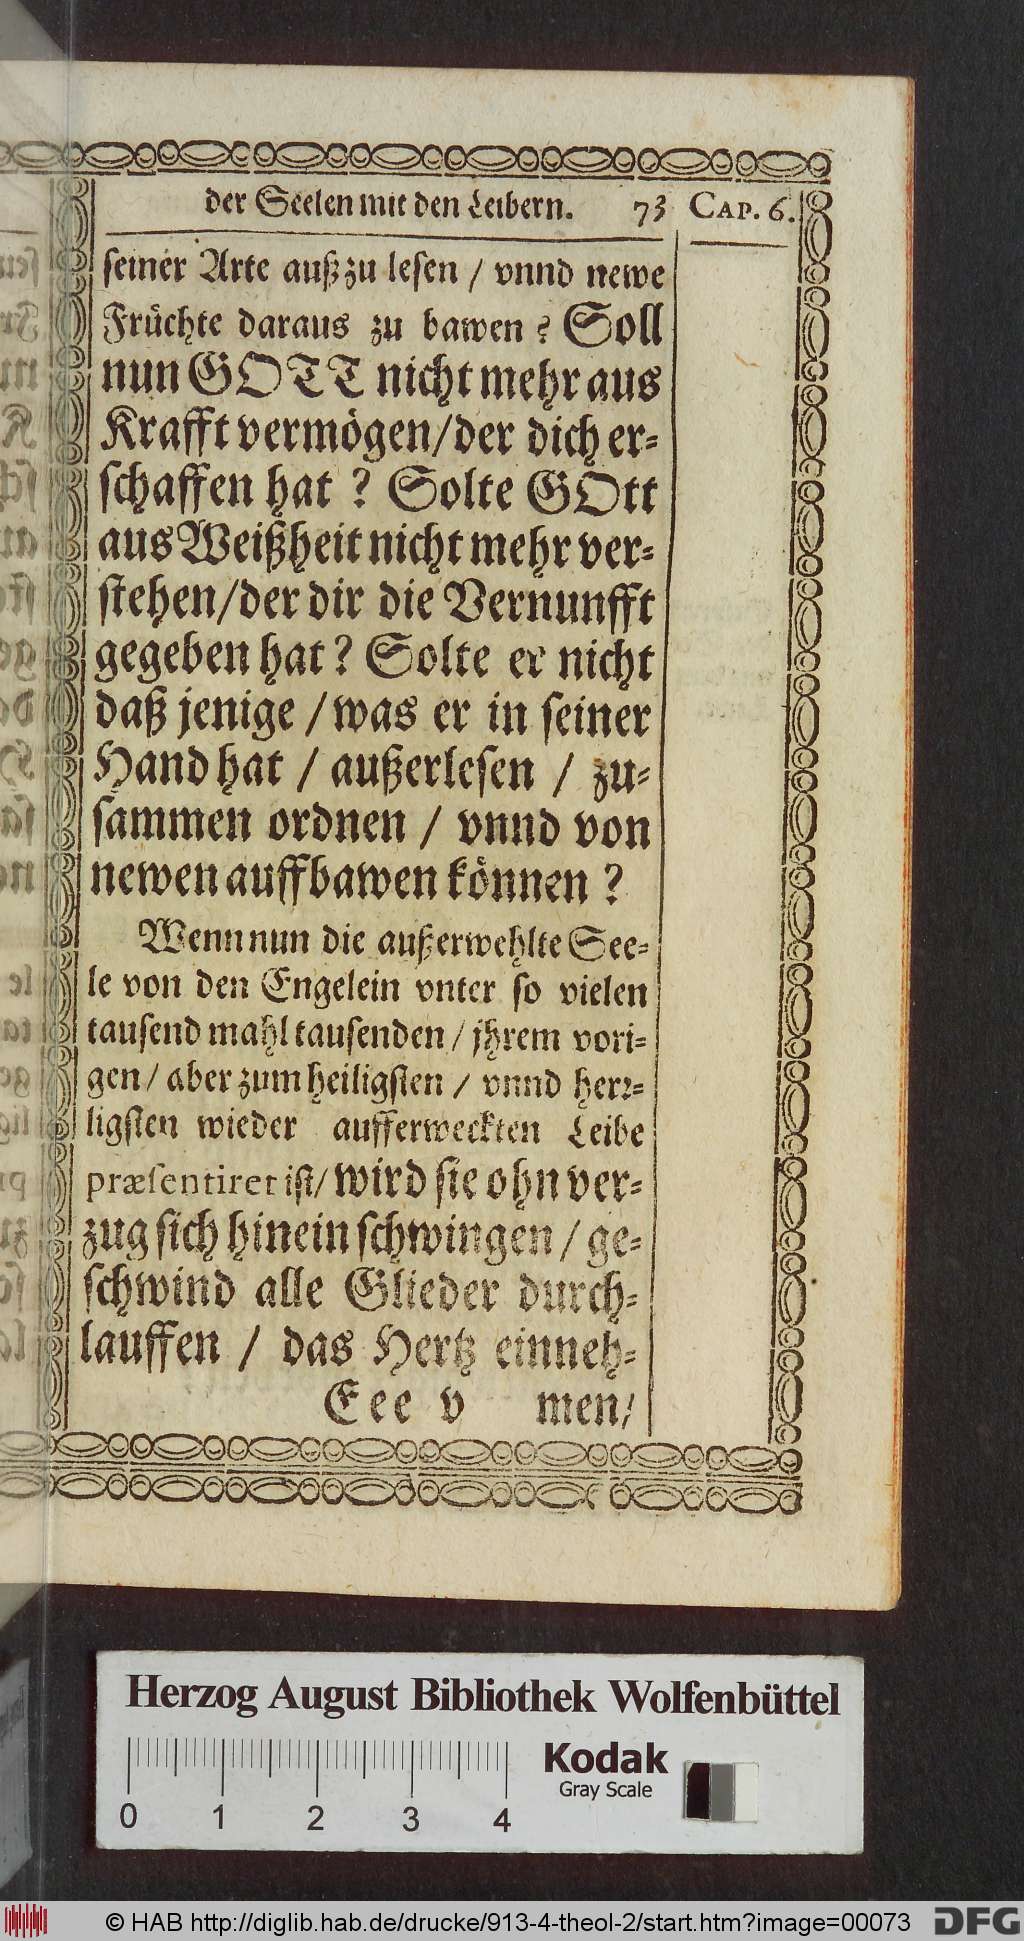 der Seelen mit den Leibern. 73 CAP. 6.
seiner Arte auß zu lesen / vnnd newe
Früchte daraus zu bawen ? Soll
nun GOTT nicht mehr aus
Krafft vermögen/der dich er-
schaffen hat ? Solte GOtt
aus Weißheit nicht mehr ver-
stehen/der dir die Vernunfft
gegeben hat? Solte er nicht
daß jenige / was er in seiner
Hand hat / außerlesen / zu-
sammen ordnen / vnnd von
newen auffbawen können ?
Wenn nun die außerwehlte See-
le von den Engelein vnter so vielen
tausend mahl tausenden / jhrem vori-
gen / aber zum heiligsten / vnnd herr-
ligsten wieder aufferweckten Leibe
præsentiret ist/ wird sie ohn ver-
zug sich hinein schwingen / ge-
schwind alle Glieder durch-
lauffen / das Hertz einneh-
Eee v men/
Herzog August Bibliothek Wolfenbüttel
Kodak
Gray Scale
0 1 2 3 4
© HAB http://diglib.hab.de/drucke/913-4-theol-2/start.htm?image=00073 DFG